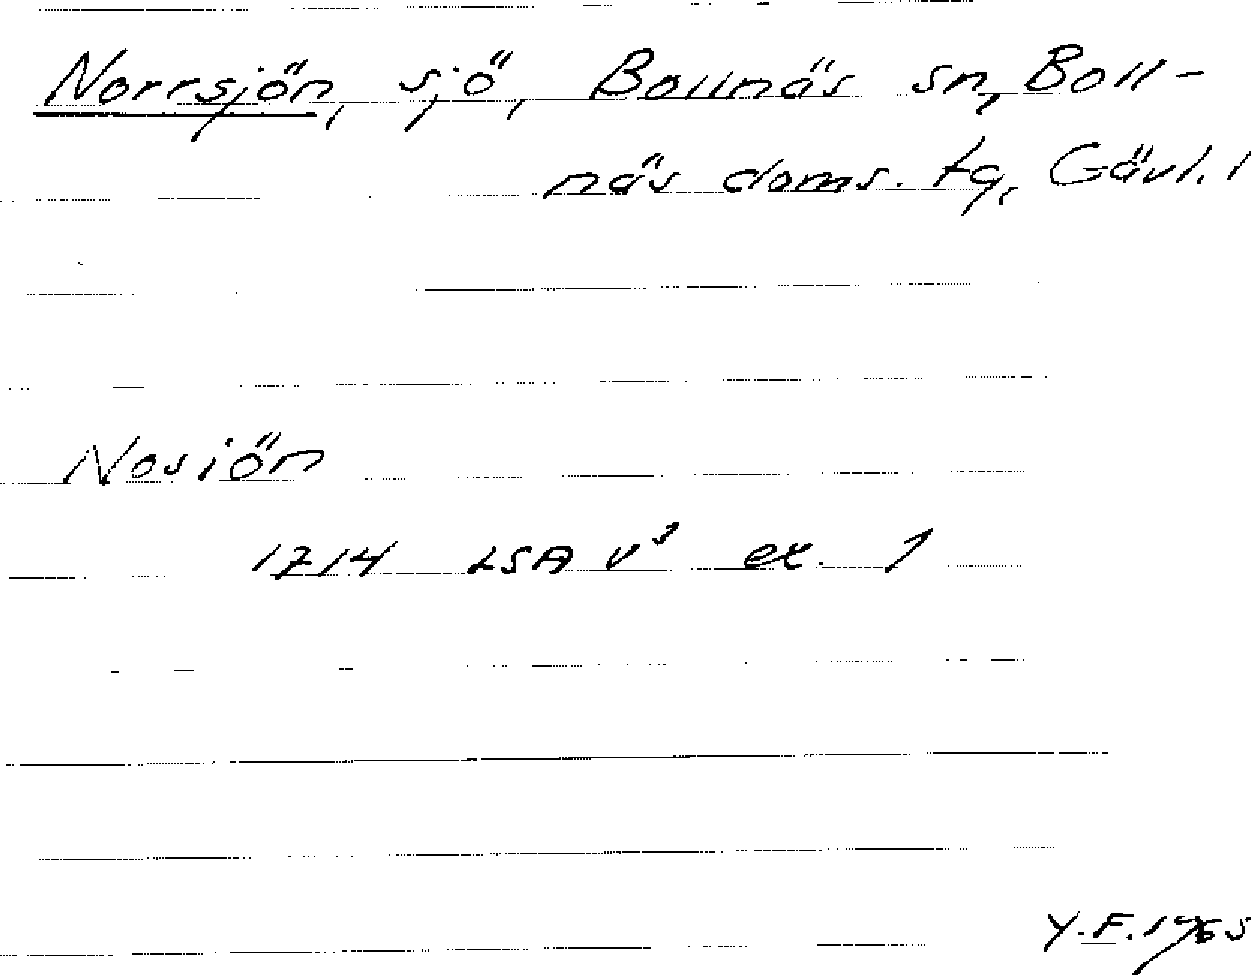 Norrsjön, sjö, Bollnäs sn, Boll-
näs doms. tg, Gävl. l
Nosiön
1714 LSA v³ ex. 1
Y.F. 1965